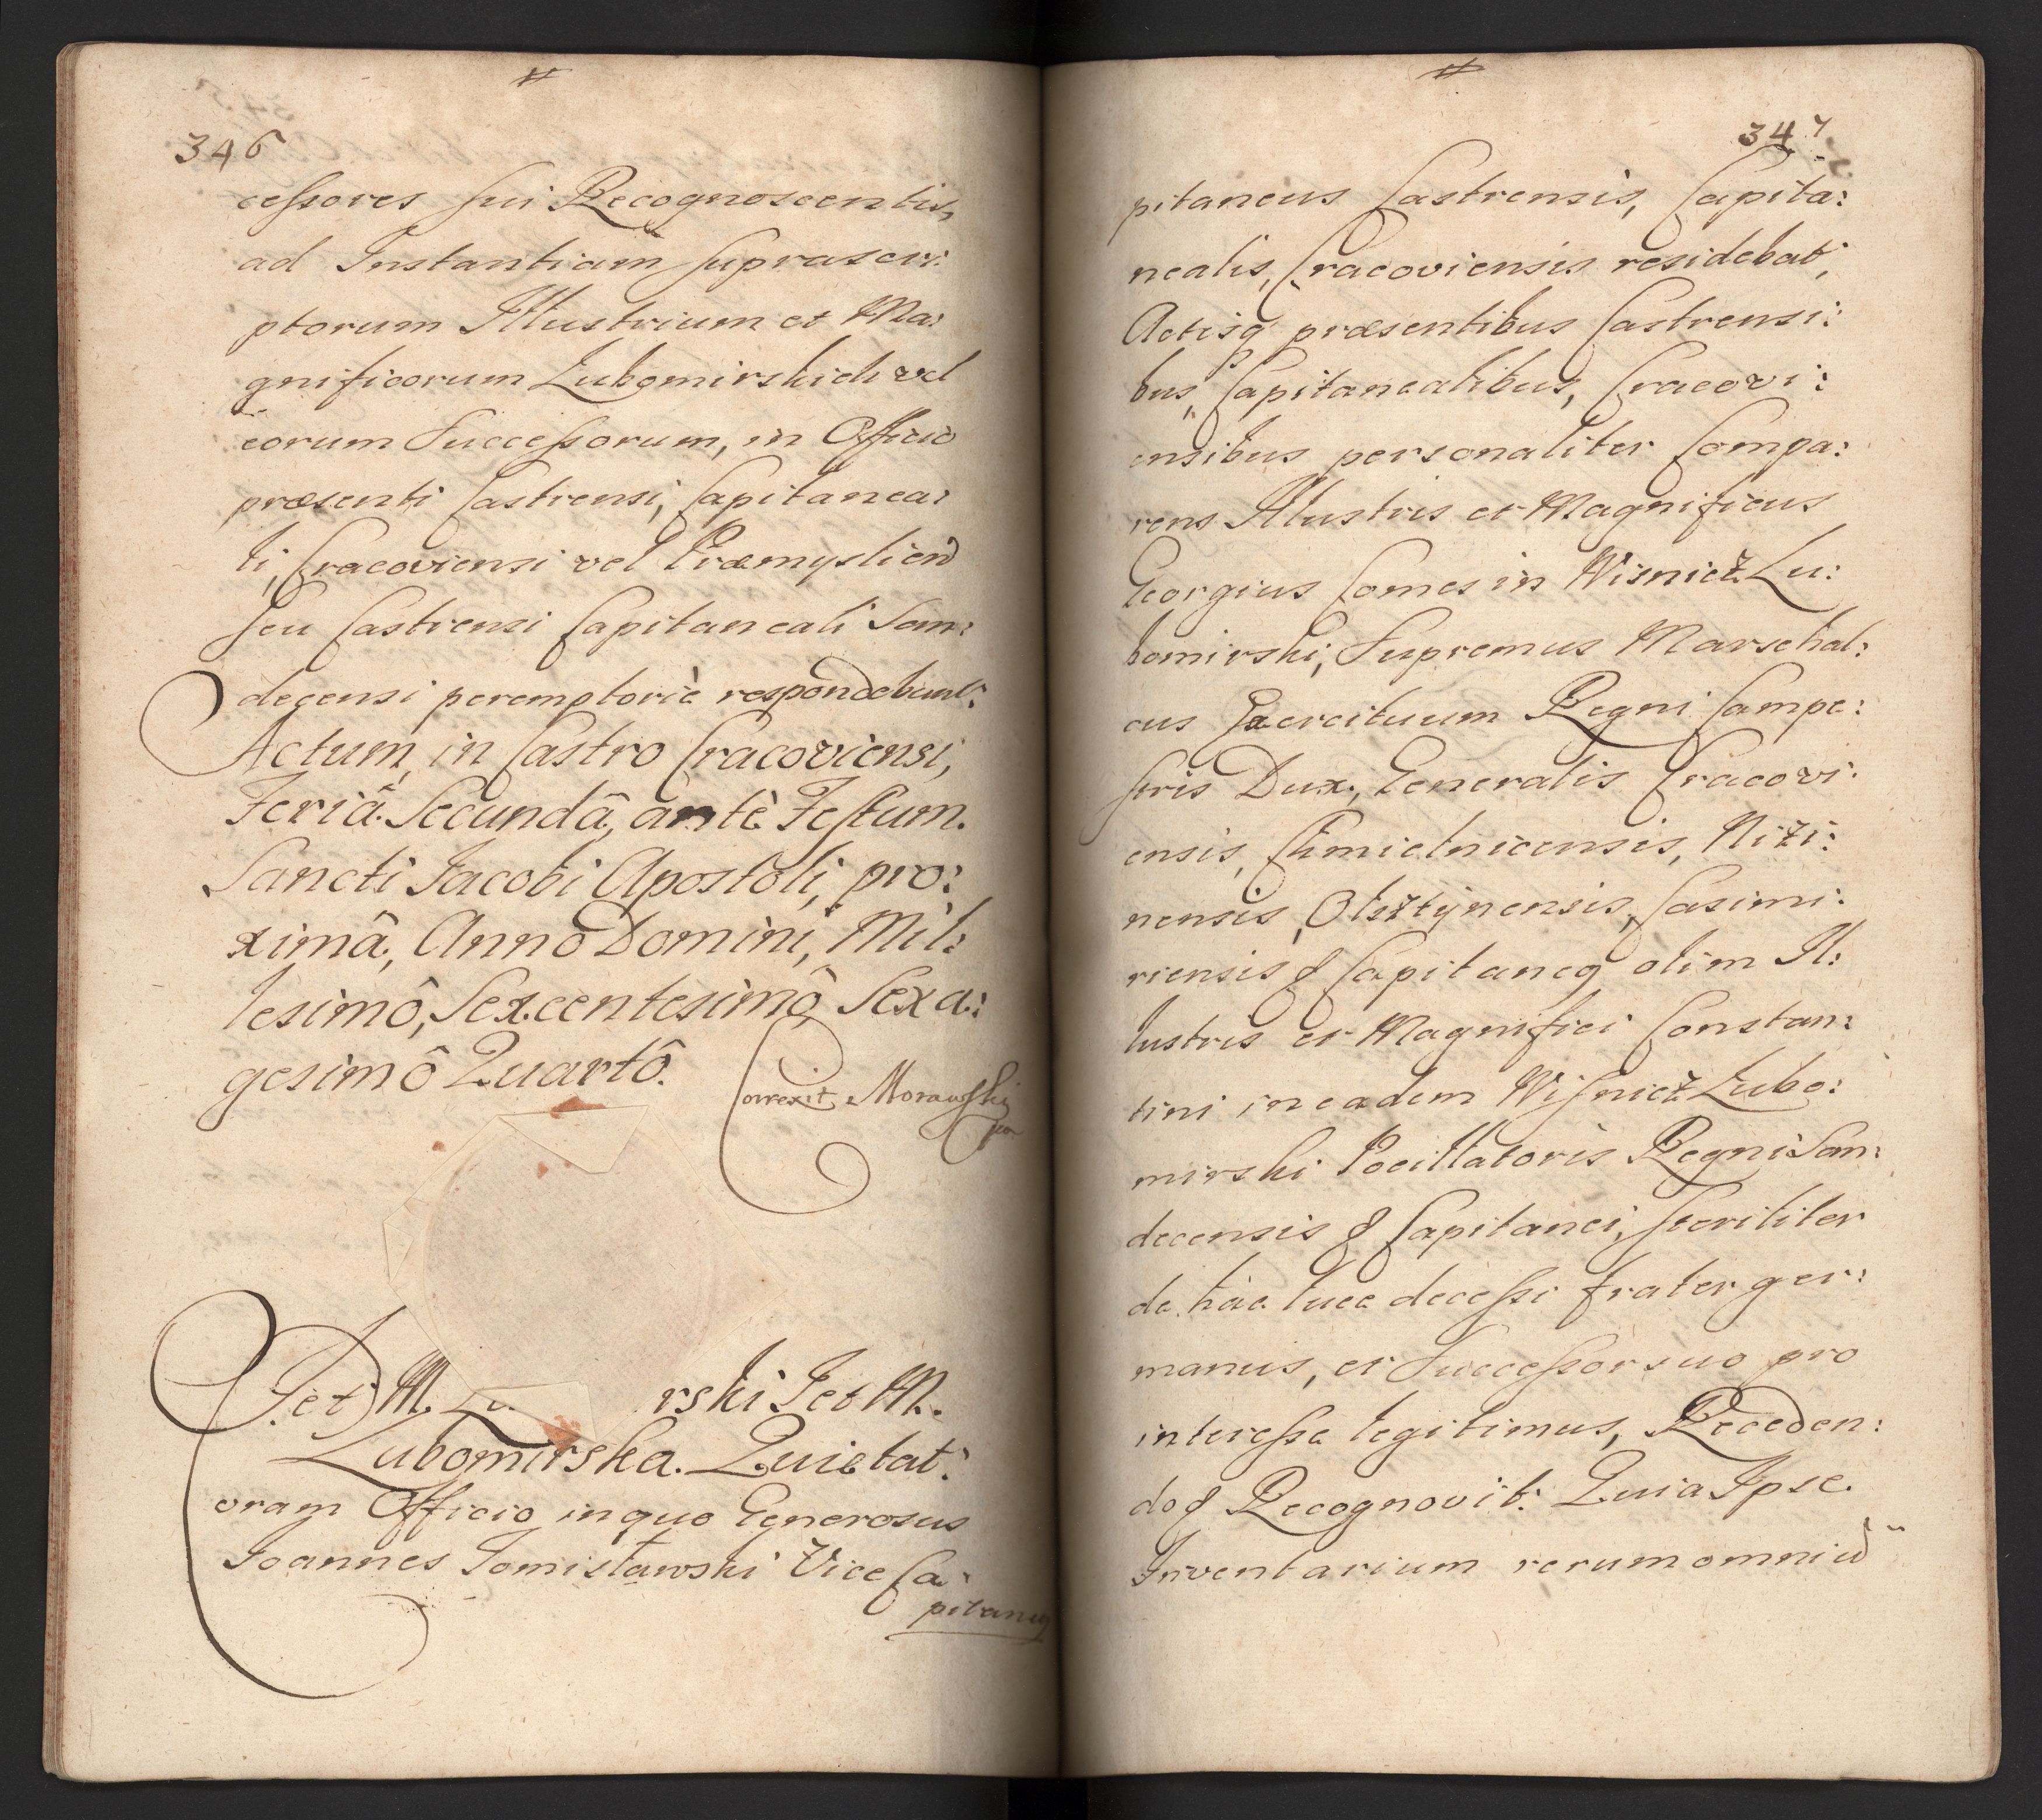 346
cessores sui Recognoscentis,
ad Instantiam suprascri:
ptorum Illustrium et Ma:
gnificorum Lubomirskich vel
eorum Successorum, in Officio
præsenti Castrensi, Capitanea:
li, Cracoviensi vel Præmyslien
seu Castrensi Capitaneali San:
decensi peremptoriè respondebunt:
Actum in Castro Cracoviensi,
Feriâ Secundâ, antè Festum
Sancti Jacobi Apostoli, pro:
ximâ, Annô Domini, Mil:
lesimô, Sexcentesimô Sexa:
gesimô Quartô.
Correxit Morawski
J et M. Lu rski J et M.
Lubomirska. Quietat:
oram Officio in quo Generosus
Joannes Tomisławski Vice Ca:
pitaneq
347
pitaneus Castrensis, Capita:
nealis, Cracoviensis residebat,
Actisq præsentibus Castrensi:
bus, Capitanealibus, Cracovi:
ensibus personaliter Compa:
rens Illustris et Magnificus
Georgius Comes in Wisnicz Lu:
bomirski, Supremus Marschal:
cus Exercituum Regni Campe:
stris Dux, Generalis Cracovi:
ensis, Chmielnicensis, Niži:
nensis, Olsztÿnensis, Casimi:
riensis & Capitaneq olim Il:
lustris et Magnifici Constan:
tini in eadem Wisnicz Lubo:
mirski Pocillatoris Regni San:
decensis & Capitanei, steriliter
de hâc luce decessi frater ger:
manus, et Successor suo pro
interesse legitimus, Receden:
do & Recognovit: Quia Ipse
Inventarium rerum omniũ